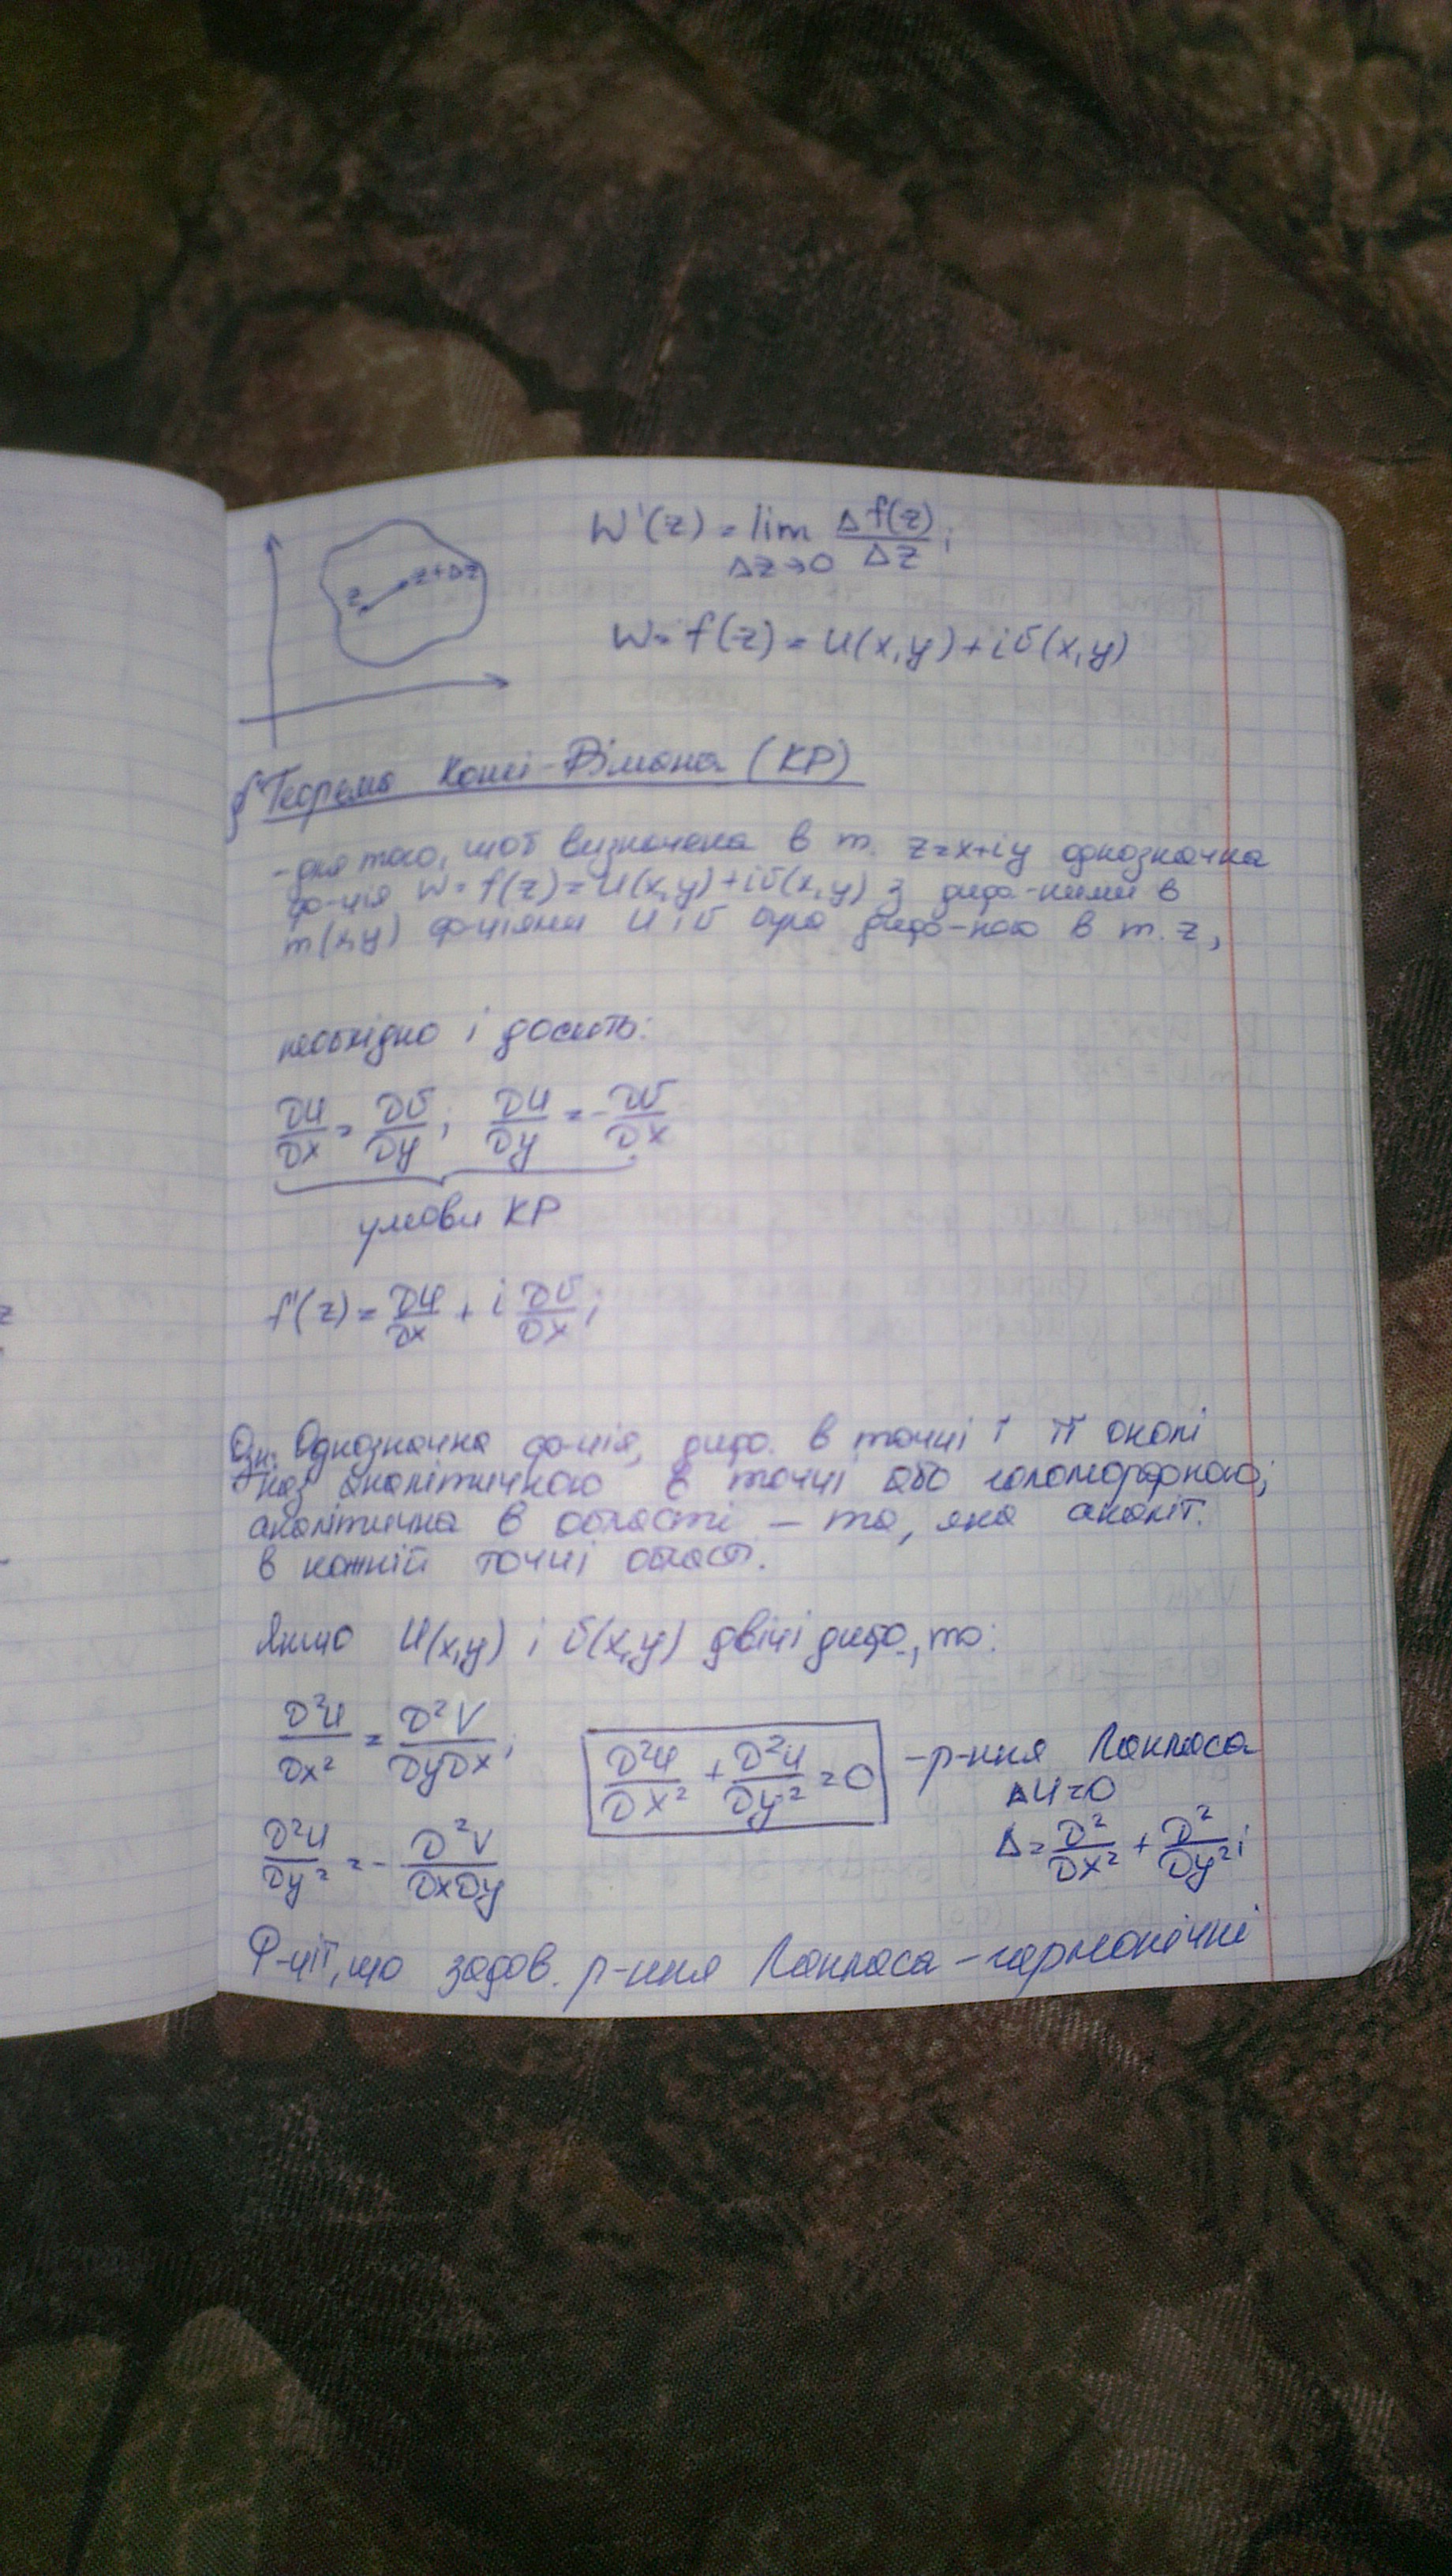 W'(z) = lim Δf(z)/Δz;
Δz→0
z z+Δz
W = f(z) = U(x,y) + iv(x,y)
§ Теорема Коші-Рімана (КР)
- для того, щоб визначена в т. z=x+iy однозначна
ф-ція W = f(z) = U(x,y) + iv(x,y) з диф-ними в
т(x,y) ф-ціями U і v була диф-ною в т. z,
необхідно і досить:
∂U/∂x = ∂v/∂y; ∂U/∂y = -∂v/∂x
умови КР
f'(z) = ∂U/∂x + i ∂v/∂x;
Озн. Однозначна ф-ція, диф. в точці і її околі
наз аналітичною в точці або голоморфною;
аналітична в області – та, яка аналіт.
в кожній точці області.
Якщо U(x,y) і v(x,y) двічі диф., то:
∂²U/∂x² = ∂²V/∂y∂x; ∂²U/∂x² + ∂²U/∂y² = 0 - р-ння Лапласа
ΔU=0
∂²U/∂y² = - ∂²V/∂x∂y Δ = ∂²/∂x² + ∂²/∂y²;
Ф-ції, що задов. р-ння Лапласа - гармонічні